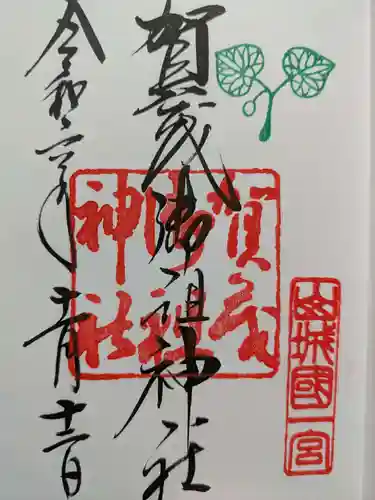 山城國一宮
賀茂御祖神社
賀茂
御祖
神社
令和六年
十一月
十三日